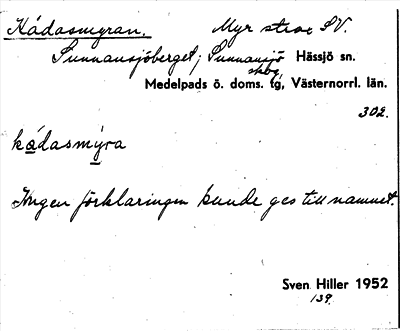 Kådasmyran. Myr strax SV.
Sunnansjöberget; Sunnansjö Hässjö sn.
skbg
Medelpads ö. doms. tg, Västernorrl. län.
302.
kådasmýra
Ingen förklaringen kunde ges till namnet.
Sven Hiller 1952
139.